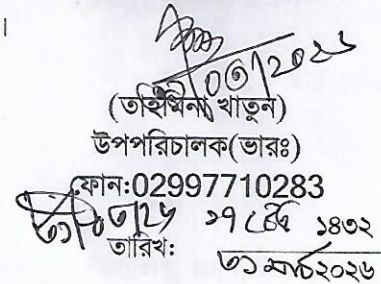 (তহমিনা খাতুন)
উপপরিচালক(ভারঃ)
ফোন:02997710283
১৭ চৈত্র ১৪৩২
তারিখ:
৩১ মার্চ ২০২৬